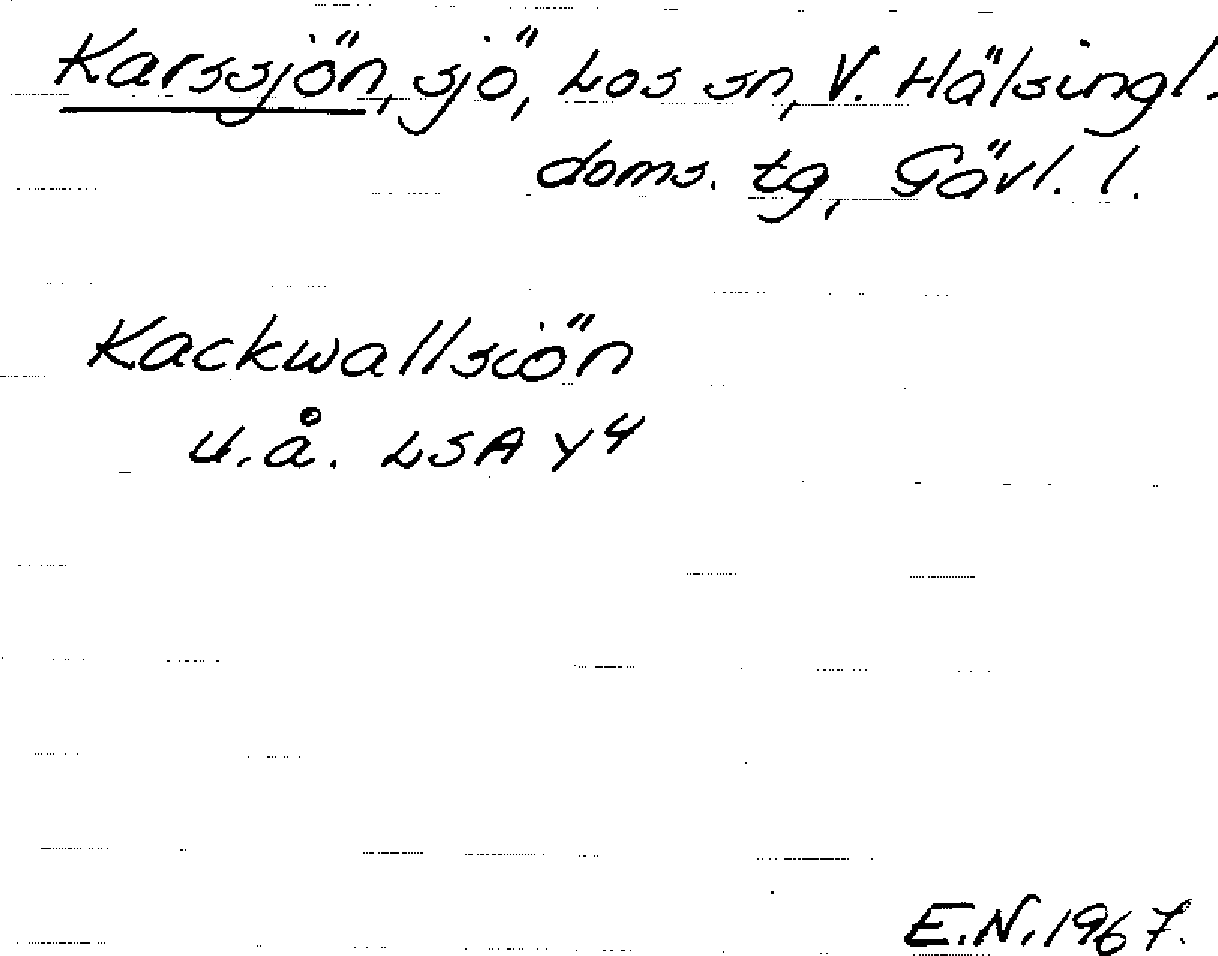 Karssjön, sjö, Los sn, V. Hälsingl.
doms. tg, Gävl. l.
Kackwallsiön
u.å. LSA Y4
E.N. 1967.